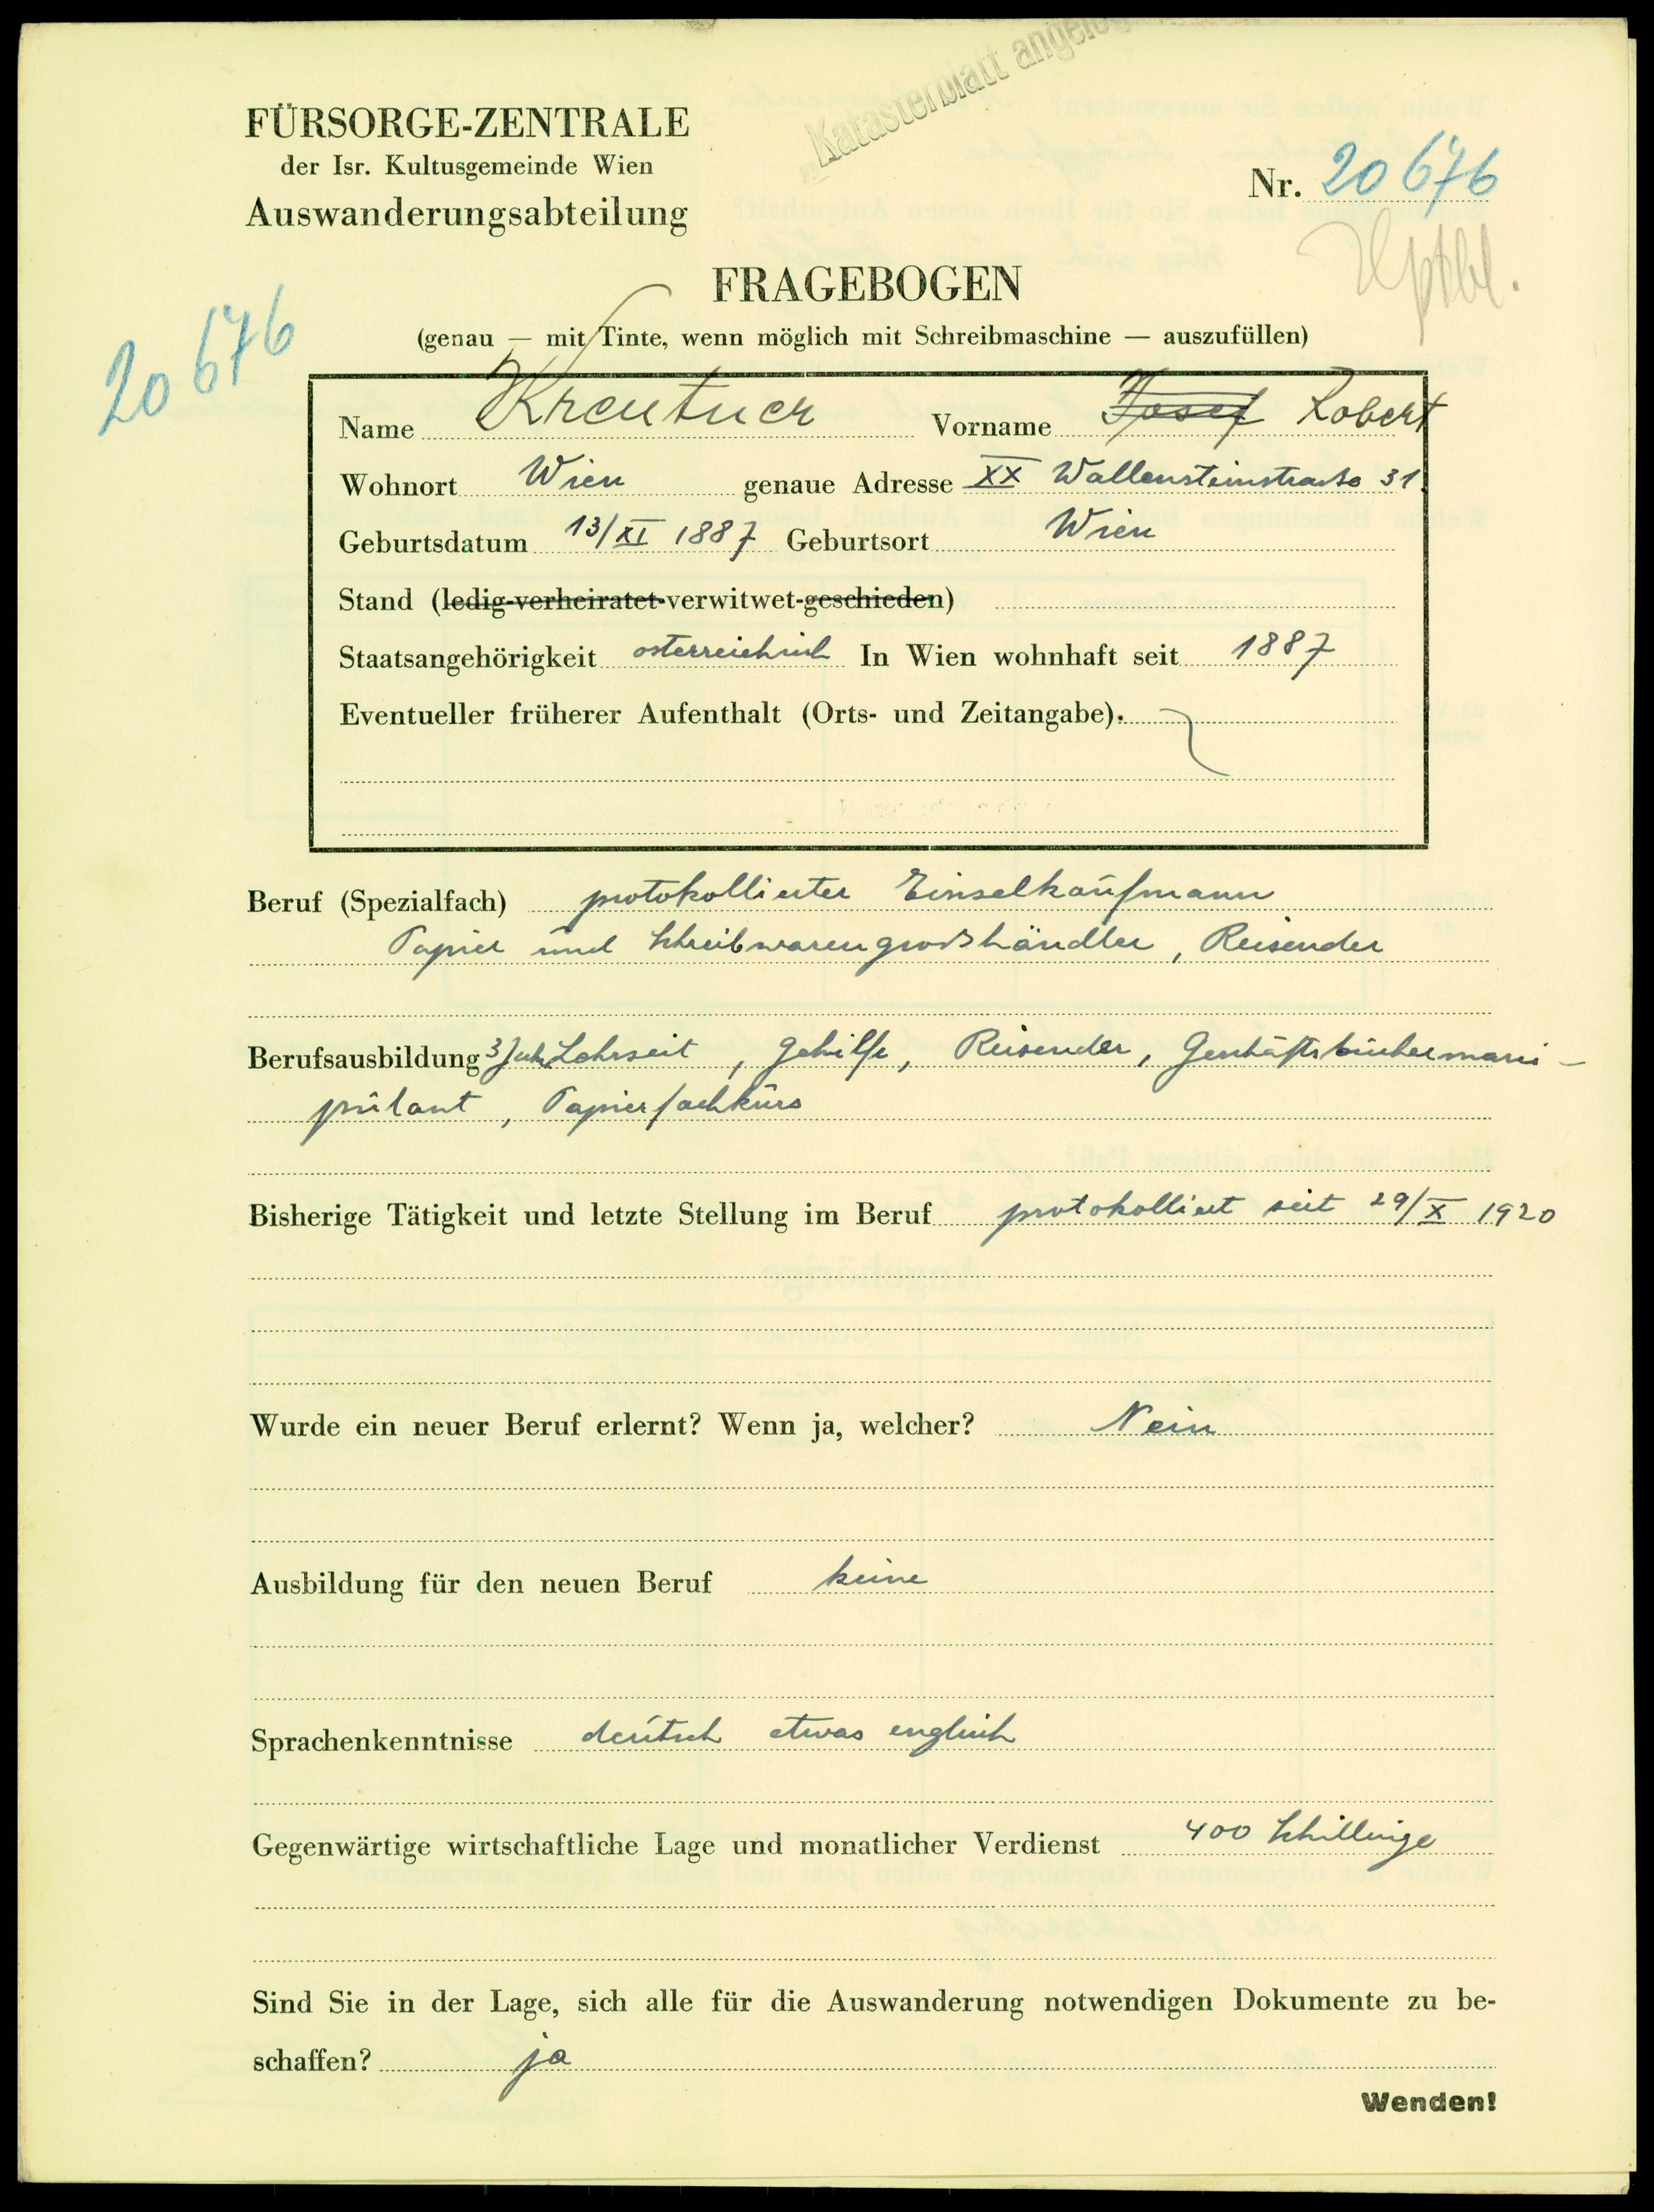 „Katasterblatt angelegt
FÜRSORGE-ZENTRALE
der Isr. Kultusgemeinde Wien
Auswanderungsabteilung
Nr. 20676
Hptbl.
20676
FRAGEBOGEN
(genau — mit Tinte, wenn möglich mit Schreibmaschine — auszufüllen)
Name Kreutner Vorname Josef Robert
Wohnort Wien genaue Adresse XX Wallensteinstrasse 31
Geburtsdatum 13/XI 1887 Geburtsort Wien
Stand (ledig-verheiratet-verwitwet-geschieden)
Staatsangehörigkeit österreichisch In Wien wohnhaft seit 1887
Eventueller früherer Aufenthalt (Orts- und Zeitangabe).
Beruf (Spezialfach) protokollierter Einzelkaufmann
Papier und Schreibwarengrosshändler, Reisender
Berufsausbildung 3 Jahr Lehrzeit, Gehilfe, Reisender, Geschäftsbüchermani-
pulant, Papierfachkurs
Bisherige Tätigkeit und letzte Stellung im Beruf protokolliert seit 29/X 1920
Wurde ein neuer Beruf erlernt? Wenn ja, welcher? Nein
Ausbildung für den neuen Beruf keine
Sprachenkenntnisse deutsch etwas englisch
Gegenwärtige wirtschaftliche Lage und monatlicher Verdienst 400 Schillinge
Sind Sie in der Lage, sich alle für die Auswanderung notwendigen Dokumente zu be-
schaffen? ja
Wenden!